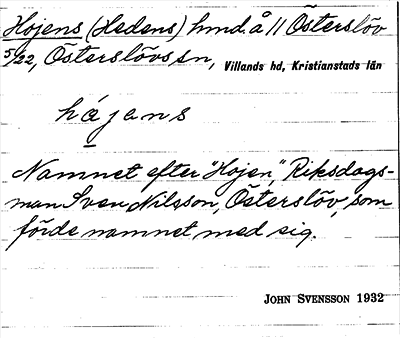 Hojens (Hedens) hmd. å 11 Österslöv
5/22, Österslövs sn, Villands hd, Kristianstads län
hájens
Namnet efter "Hojen", Riksdags-
man Sven Nilsson, Österslöv, som
förde namnet med sig.
JOHN SVENSSON 1932